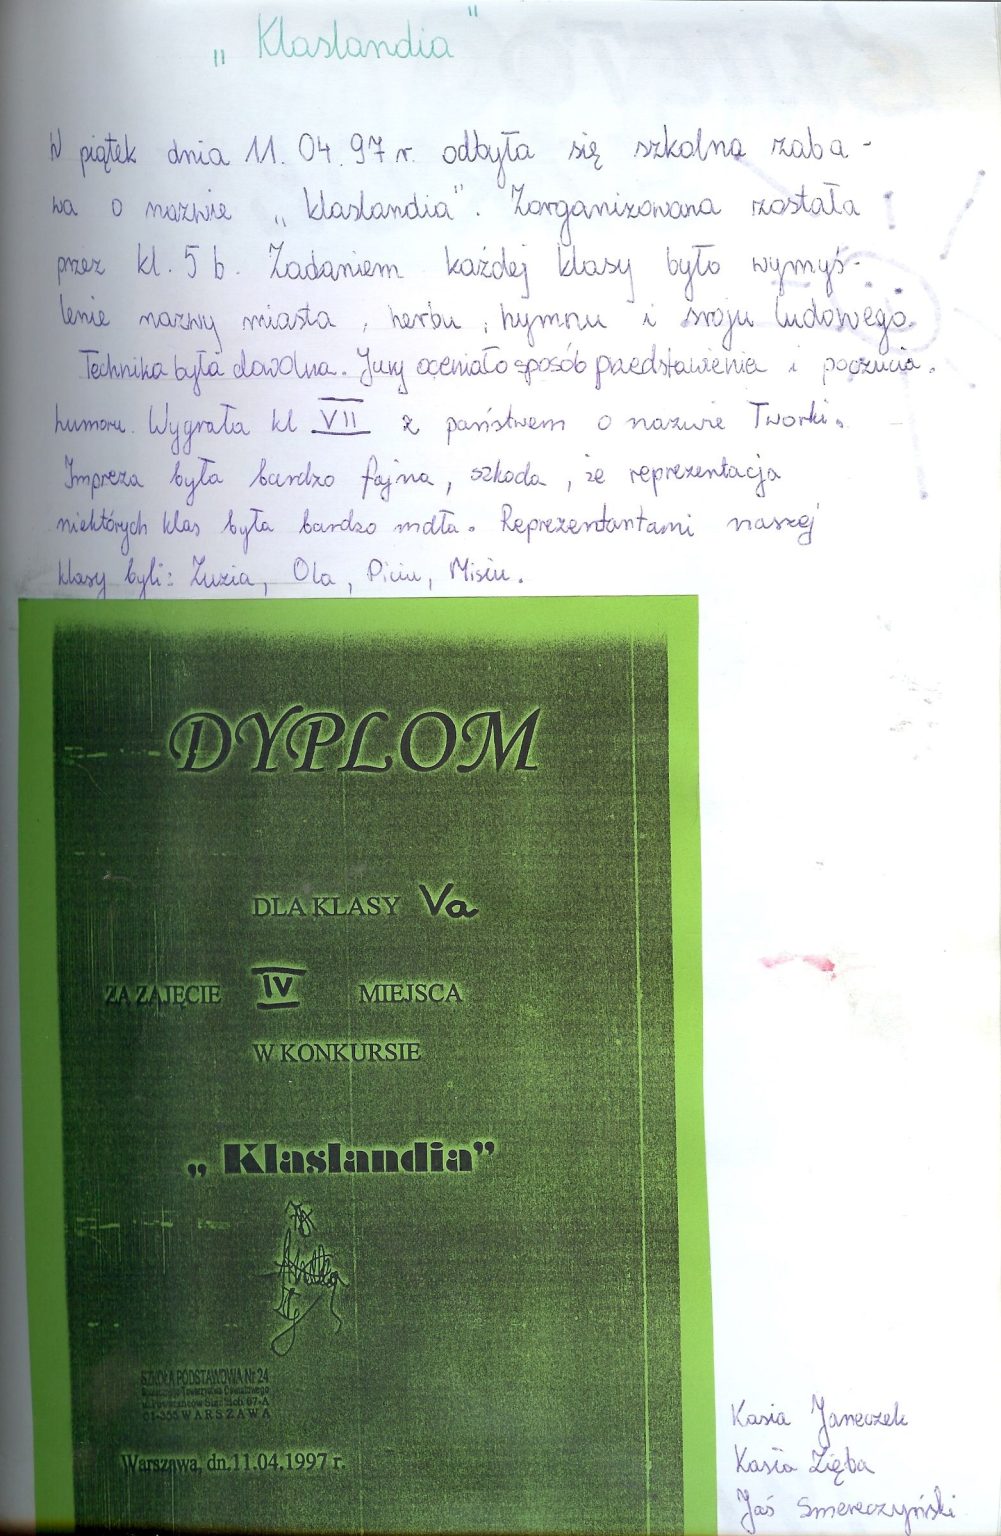 „Klaslandia"
W piątek dnia 11.04.97 r. odbyła się szkolna zaba-
wa o nazwie „klaslandia". Zorganizowana została
przez kl. 5 b. Zadaniem każdej klasy było wymyś-
lenie nazwy miasta, herbu, hymnu i stroju ludowego.
Technika była dowolna. Jury oceniało sposób przedstawienia i poczucia.
humoru. Wygrała kl VII z państwem o nazwie Tworki.
Impreza była bardzo fajna, szkoda, że reprezentacja
niektórych klas była bardzo mdła. Reprezentantami naszej
klasy byli: Zuzia, Ola, Piciu, Misiu.
DYPLOM
DLA KLASY Va
ZA ZAJĘCIE IV MIEJSCA
W KONKURSIE
„Klaslandia”
SZKOŁA PODSTAWOWA Nr 24
01-355 WARSZAWA
Warszawa, dn.11.04.1997 r.
Kasia Janeczek
Kasia Zięba
Jaś Smereczyński